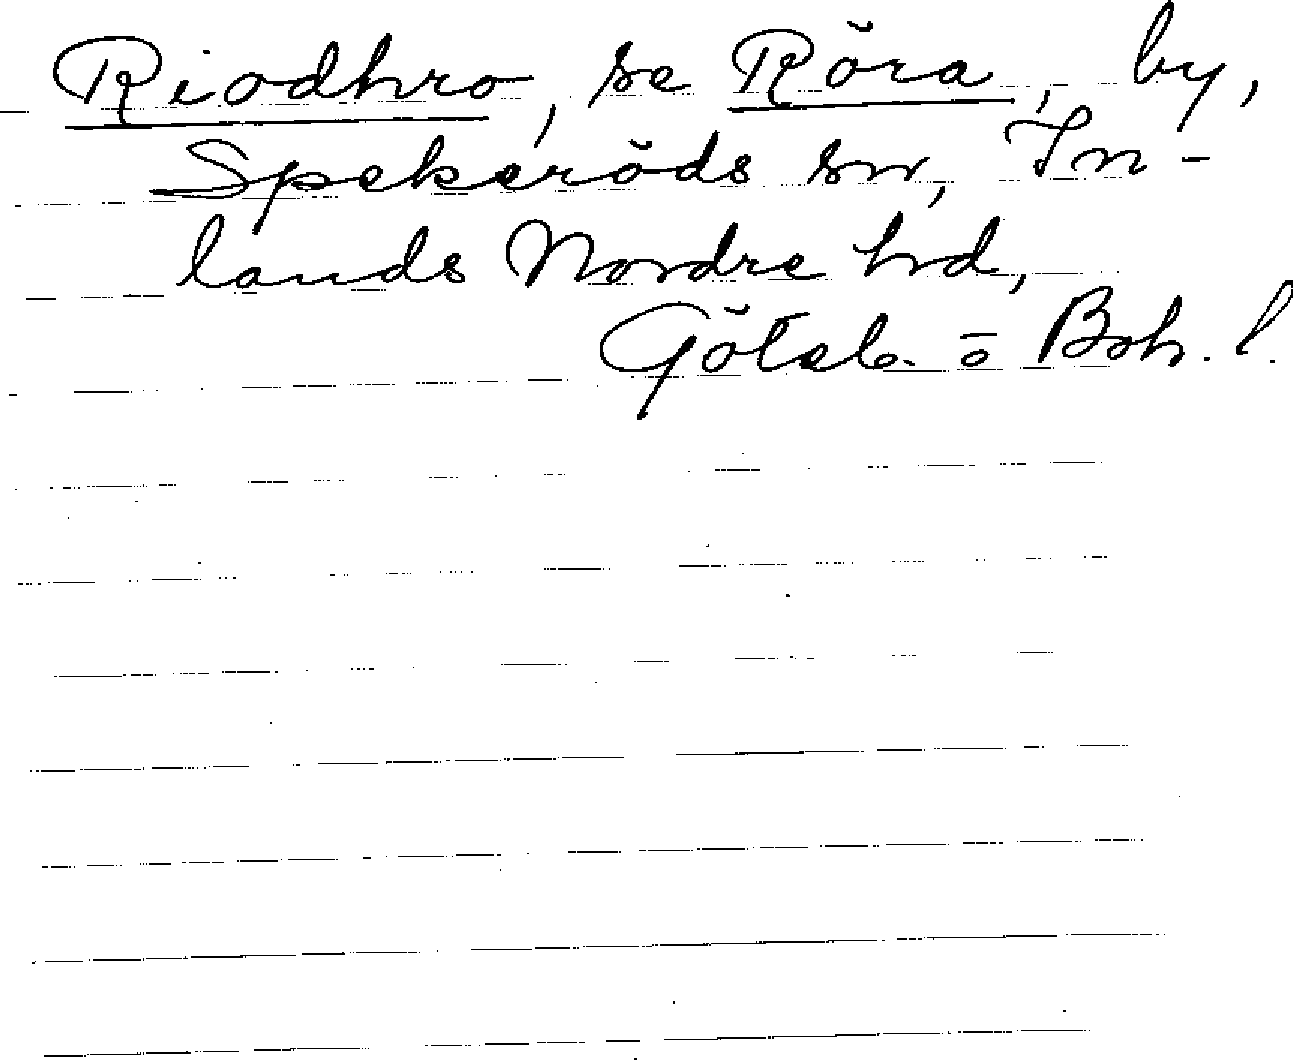 Riodhro, se Röra, by,
Spekeröds sn, In-
lands Nordre hd,
Göteb. o Boh. l.